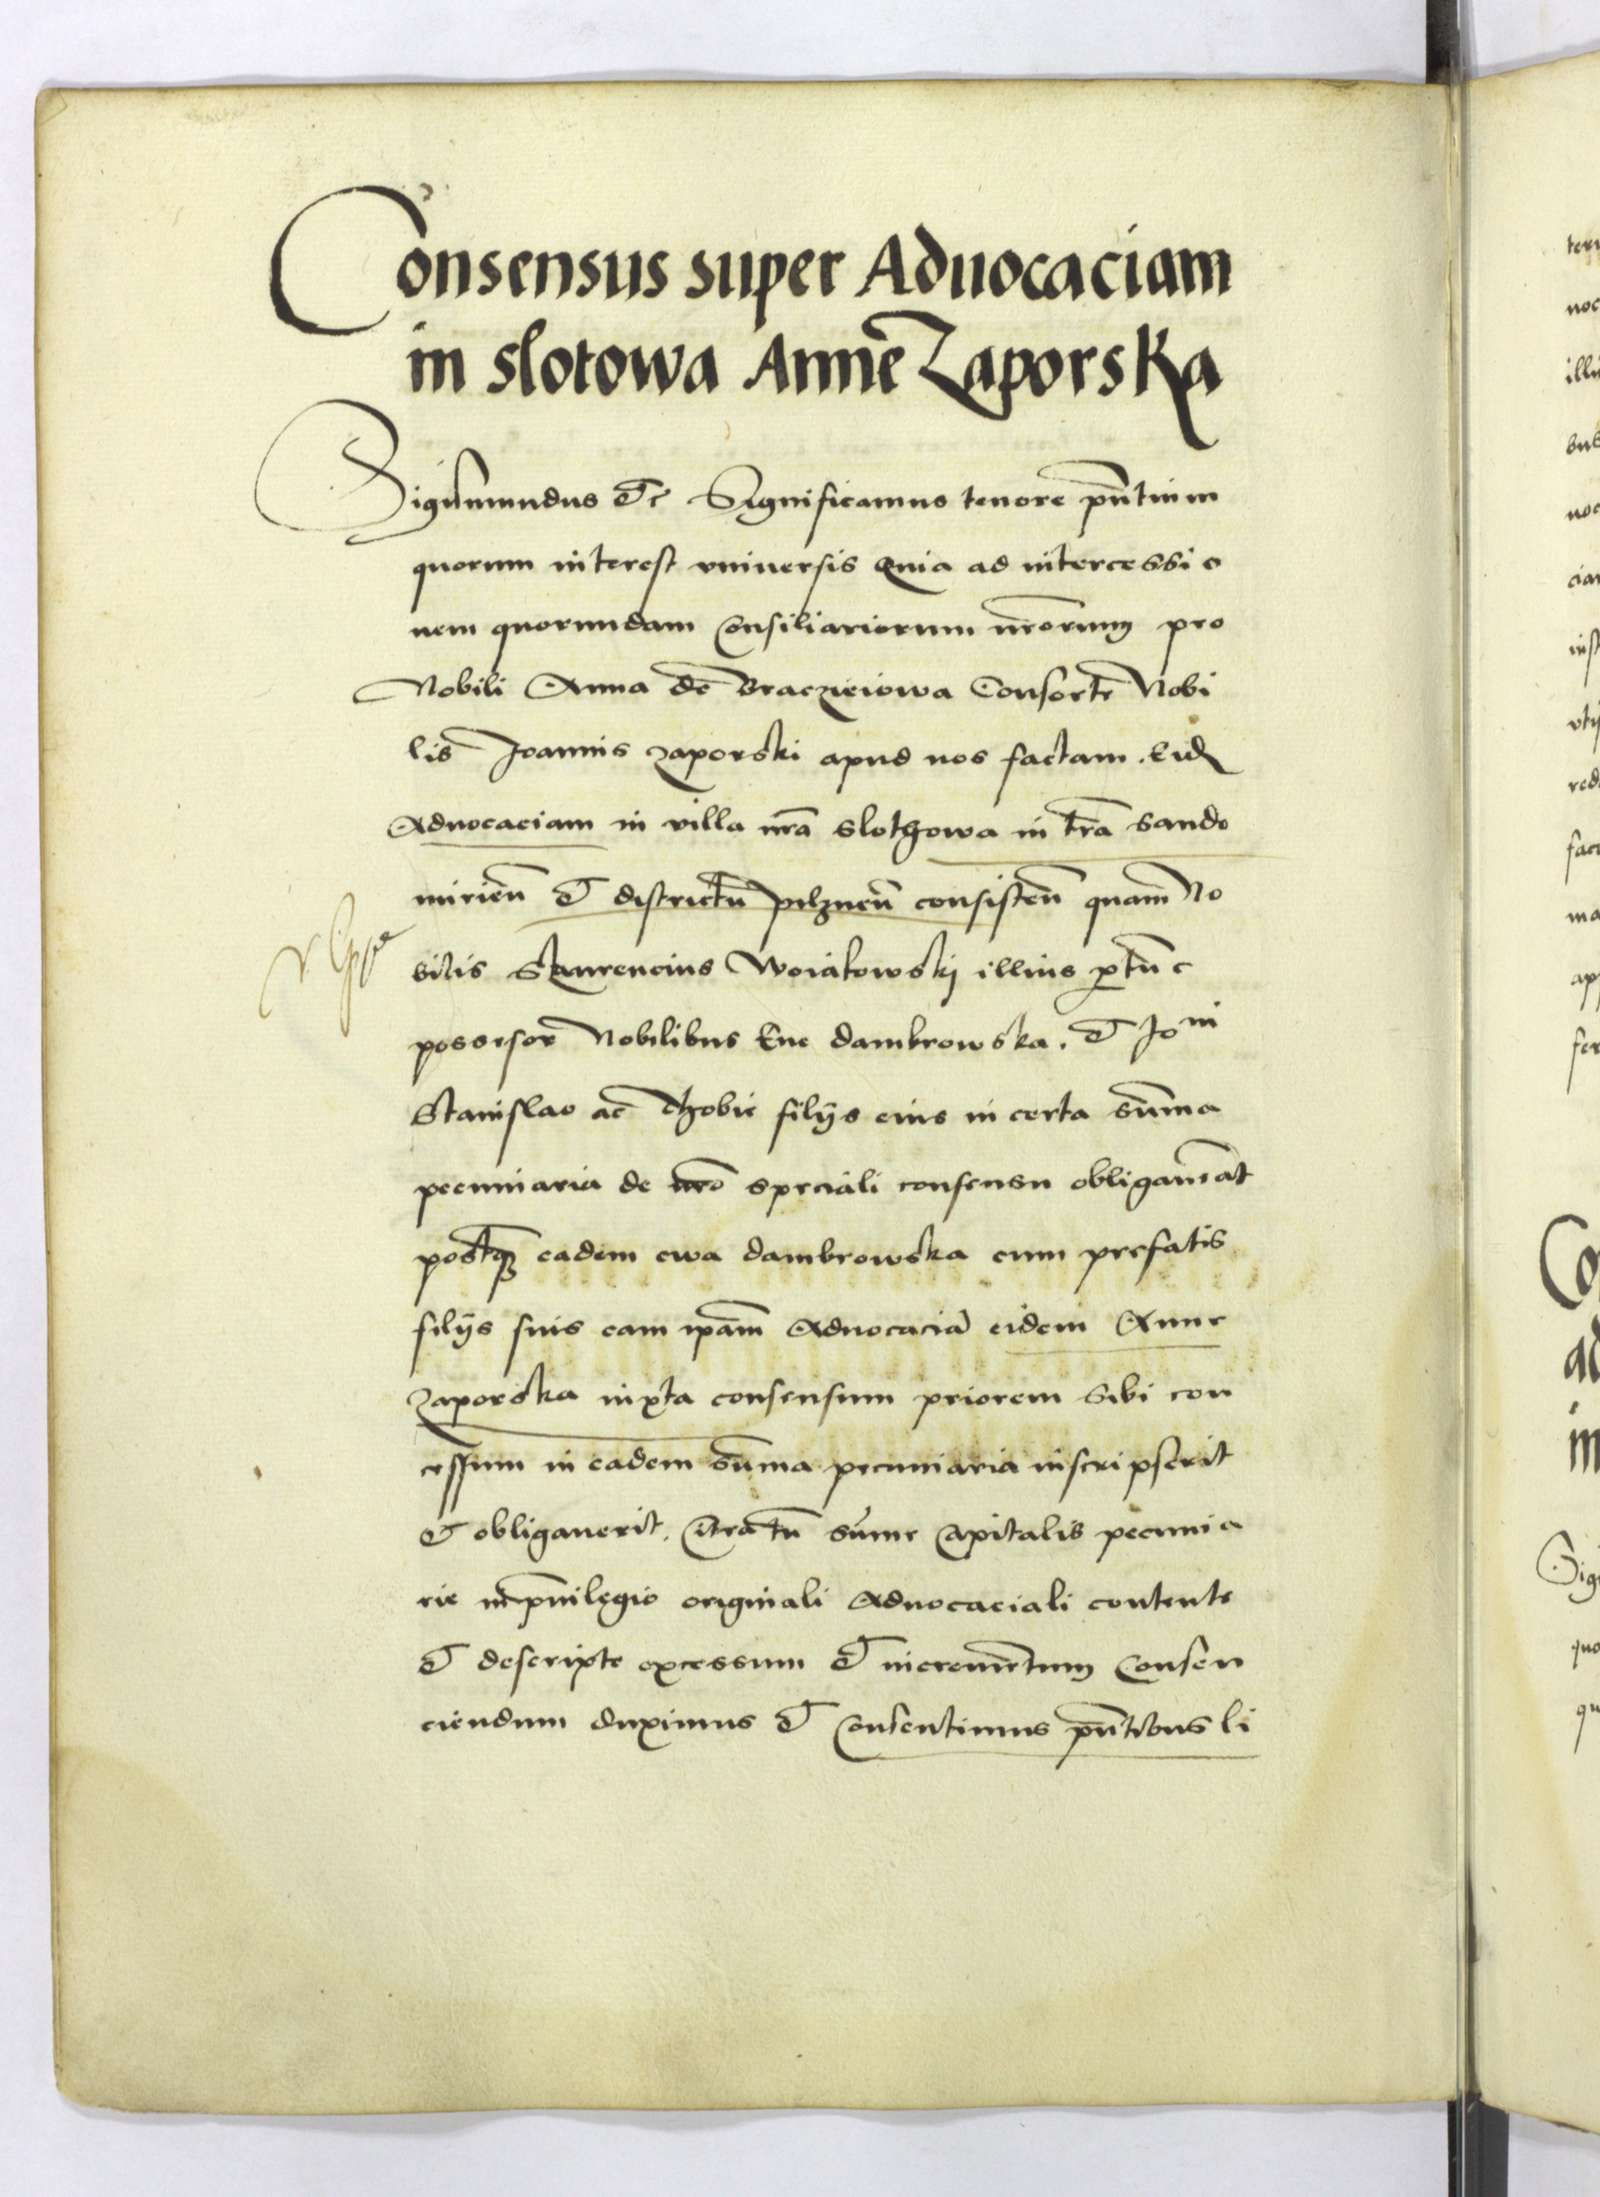 Consensus super Aduocaciam
in slotowa Anne Zaporska
Sigismundus &c Significamus tenore pñtium
quorum interest vniuersis Quia ad intercessio
nem quorundam Consiliariorum nr̃orum pro
Nobili Anna de Braczieiowa Consorte Nobi
lis Joannis Zaporski apud nos factam. Eid
Aduocaciam in villa nr̃a slothowa in tr̃a Sando
mirien̄ & districtu pilznen̄ consisten̄ quam No
bilis Laurencius Woiakowskj illius p tunc
possesor Nobilibus Eue dambrowska. & Jo ni
Stanislao ac thobie filijs eius in certa sum̄a
pecuniaria de nr̃o speciali consensu obligauerat
postq̃ eadem ewa dambrowska cum prefatis
filijs suis eam ip̄am Aduocaciā eidem Anne
Zaporska iuxta consensum priorem sibi con
cessum in eadem sum̄a pecuniaria inscripserit
& obligauerit. Citra tn̄ sum̄e Capitalis pecunia
rie in p̄uilegio originali Aduocaciali contente
& descripte excessum & incrementum Consen
ciendum duximus & Consentimus pñtibus li